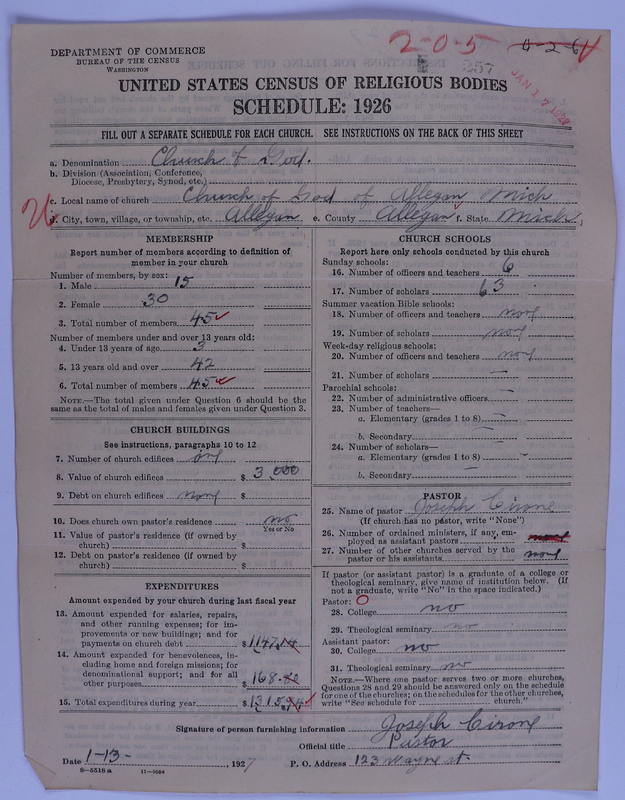 DEPARTMENT OF COMMERCE
BUREAU OF THE CENSUS
WASHINGTON
2-0-5
257
JAN 17 192
UNITED STATES CENSUS OF RELIGIOUS BODIES
SCHEDULE: 1926
FILL OUT A SEPARATE SCHEDULE FOR EACH CHURCH. SEE INSTRUCTIONS ON THE BACK OF THIS SHEET
a. Denomination Church of God.
b. Division (Association, Conference, Diocese, Presbytery, Synod, etc.)
c. Local name of church Church of God of Allegan Mich
d. City, town, village, or township, etc. Allegan e. County Allegan f. State Mich.
MEMBERSHIP
Report number of members according to definition of member in your church
Number of members, by sex:
1. Male 15
2. Female 30
3. Total number of members 45
Number of members under and over 13 years old:
4. Under 13 years of age 3
5. 13 years old and over 42
6. Total number of members 45
NOTE.—The total given under Question 6 should be the same as the total of males and females given under Question 3.
CHURCH BUILDINGS
See instructions, paragraphs 10 to 12
7. Number of church edifices one
8. Value of church edifices $ 3,000
9. Debt on church edifices none $
10. Does church own pastor's residence no
Yes or No
11. Value of pastor's residence (if owned by church) $
12. Debt on pastor's residence (if owned by church) $
EXPENDITURES
Amount expended by your church during last fiscal year
13. Amount expended for salaries, repairs, and other running expenses; for improvements or new buildings; and for payments on church debt $ 1,147.14
14. Amount expended for benevolences, including home and foreign missions; for denominational support; and for all other purposes $ 168.
15. Total expenditures during year $ 1315.94
CHURCH SCHOOLS
Report here only schools conducted by this church
Sunday schools:
16. Number of officers and teachers 6
17. Number of scholars 63
Summer vacation Bible schools:
18. Number of officers and teachers none
19. Number of scholars none
Week-day religious schools:
20. Number of officers and teachers none
21. Number of scholars —
Parochial schools:
22. Number of administrative officers —
23. Number of teachers—
a. Elementary (grades 1 to 8) —
b. Secondary —
24. Number of scholars—
a. Elementary (grades 1 to 8) -
b. Secondary —
PASTOR
25. Name of pastor Joseph Cirone
(If church has no pastor, write "None")
26. Number of ordained ministers, if any, employed as assistant pastors none
27. Number of other churches served by the pastor or his assistants none
If pastor (or assistant pastor) is a graduate of a college or theological seminary, give name of institution below. (If not a graduate, write "No" in the space indicated.)
Pastor: O
28. College no
29. Theological seminary no
Assistant pastor:
30. College no
31. Theological seminary no
NOTE.—Where one pastor serves two or more churches, Questions 28 and 29 should be answered only on the schedule for one of the churches; on the schedules for the other churches, write "See schedule for ........ church."
Signature of person furnishing information Joseph Cirone
Official title Pastor
Date 1-13- , 1927 P. O. Address 123 Wayne st.
8—5518 a 11—9084